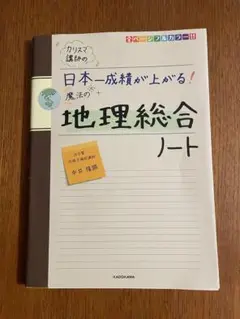 全ページフルカラー!!
カリスマ
講師の
日本一成績が上がる!
魔法の
地理総合
ノート
KADOKAWA